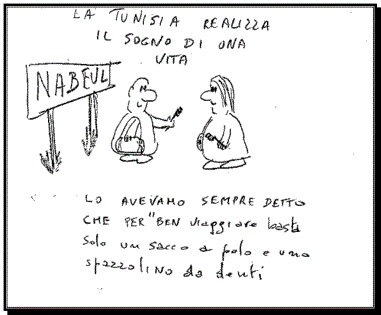 LA TUNISIA REALIZZA
IL SOGNO DI UNA
VITA
NABEUL
LO AVEVAMO SEMPRE DETTO
CHE PER "BEN viaggiare basta
solo un sacco a pelo e uno
spazzolino da denti